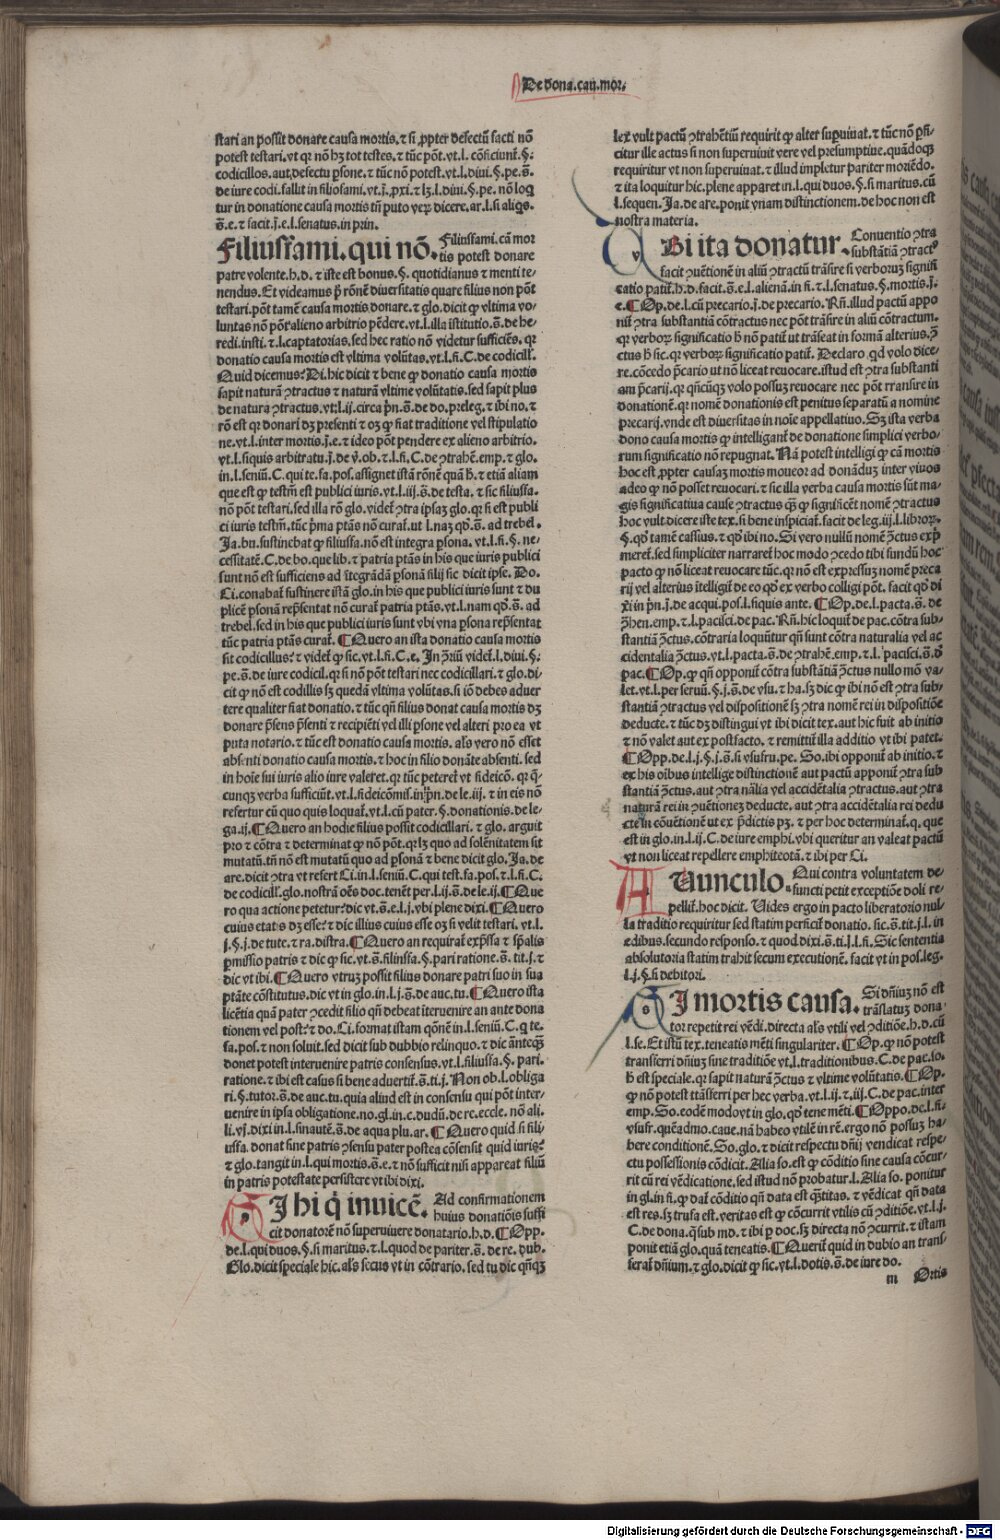 De dona.cau.mor.
stari an possit donare causa mortis. ⁊ si ꝓpter defectū facti nō
potest testari. vt qꝛ nō hꝫ tot testes. ⁊ tūc pōt. vt.l. cōficiunt. §.
codicillos. aut defectu ꝑsone. ⁊ tūc nō potest. vt.l. diui. §. pe. s̄.
de iure codi. fallit in filiofami. vt.j. ꝓxi. ⁊ lꝫ.l. diui. §. pe. nō loq̄
tur in donatione causa mortis tn̄ puto veꝝ dicere. ar.l. si aliqs.
s̄.e. ⁊ facit.j.e.l. senatus. in prin.
Filiusfami. qui nō. Filiusfami. cā mor
tis potest donare
patre volente. h.d. ⁊ iste est bonus. §. quotidianus ⁊ menti te-
nendus. Et videamus p̄ rōnē diuersitatis quare filius non pōt
testari. pōt tamē causa mortis donare. ⁊ glo. dicit ꝙ vltima vo-
luntas nō pōt alieno arbitrio pēdere. vt.l. illa īstitutio. s̄. de he-
redi. insti. ⁊.l. captatorias. sed hec ratio nō videtur sufficiēs. qꝛ
donatio causa mortis est vltima volūtas. vt.l. fi. C. de codicill.
Quid dicemus? Di. hic dicit ⁊ bene ꝙ donatio causa mortis
sapit naturā ꝯtractus ⁊ naturā vltime volūtatis. sed sapit plus
de natura ꝯtractus. vt.l.ij. circa pn̄. s̄. de do. preleg. ⁊ ibi no. ⁊
rō est qꝛ donari dꝫ presenti ⁊ oꝫ ꝙ fiat traditione vel stipulatio
ne. vt.l. inter mortis.j.e. ⁊ ideo pōt pendere ex alieno arbitrio.
vt.l. siquis arbitratu.j. de v̄. ob. ⁊.l. fi. C. de ꝯtrahē. emp. ⁊ glo.
in.l. seniū. C. qui te. fa. pos. assignet istā rōnē quā h̄. ⁊ etiā aliam
que est ꝙ testm̄ est publici iuris. vt.l.iij. s̄. de testa. ⁊ sic filiusfa.
nō pōt testari. sed illa rō glo. videt ꝯtra ipsaꝫ glo. qꝛ si est publi
ci iuris testm̄. tūc p̄ma ptās nō curat. ut l. naꝫ qd̄. s̄. ad trebel.
Ja. bu. sustinebat ꝙ filiusfa. nō est integra ꝑsona. vt.l. fi. §. ne-
cessitatē. C. de bo. que lib. ⁊ patria ptās in his que iuris publici
sunt nō est sufficiens ad ītegrādā ꝑsonā filij sic dicit ipse. Do.
Ci. conabat sustinere istā glo. in his que publici iuris sunt ⁊ du
plicē ꝑsonā rep̄sentat nō curat patria ptās. vt.l. nam qd̄. s̄. ad
trebel. sed in his que publici iuris sunt vbi vna ꝑsona rep̄sentat
tūc patria ptās curat. ¶ Quero an ista donatio causa mortis
sit codicillus? ⁊ videt ꝙ sic. vt.l. fi. C. e. In ꝯriū videt.l. diui. §.
pe. s̄. de iure codicil. qꝛ si nō pōt testari nec codicillari. ⁊ glo. di-
cit ꝙ nō est codillis sꝫ quedā vltima volūtas. si iō debes aduer
tere qualiter fiat donatio. ⁊ tūc qn̄ filius donat causa mortis dꝫ
donare p̄sens p̄senti ⁊ recipiēti vel illi ꝑsone vel alteri pro ea vt
puta notario. ⁊ tūc est donatio causa mortis. al's vero nō esset
absēti donatio causa mortis. ⁊ hoc in filio donāte absenti. sed
in hoīe sui iuris alio iure valeret. qꝛ tūc peteret vt fideicō. qꝛ q̄-
cunqꝫ verba sufficiūt. vt.l. fideicōmis. in pn̄. de le.iij. ⁊ in eis nō
refertur cū quo quis loquat. vt.l. cū pater. §. donationis. de le-
ga.ij. ¶ Quero an hodie filius possit codicillari. ⁊ glo. arguit
pro ⁊ cōtra ⁊ determinat ꝙ nō pōt. qꝛ lꝫ quo ad solēnitatem sit
mutatū. tn̄ nō est mutatū quo ad ꝑsonā ⁊ bene dicit glo. Ja. de
are. dicit ꝯtra vt refert Ci. in.l. seniū. C. qui test. fa. pos. ⁊.l. fi. C.
de codicill. glo. nostrā oēs doc. tenēt per.l.ij. s̄. de le.ij. ¶ Que
ro qua actione petetur? dic vt. s̄.e.l.j. vbi plene dixi. ¶ Quero
cuius etatis dꝫ esse? ⁊ dic illius cuius esse oꝫ si velit testari. vt.l.
j. §.j. de tute. ⁊ ra. distra. ¶ Quero an requirat exp̄ssa ⁊ sp̄alis
ꝑmissio patris ⁊ dic ꝙ sic. vt. s̄. filiusfa. §. pari ratione. s̄. tit.j. ⁊
dic vt ibi. ¶ Quero vtruꝫ possit filius donare patri suo in sua
ptāte cōstitutus. dic vt in glo. in.l.j. s̄. de auc. tu. ¶ Quero ista
licētia quā pater ꝯcedit filio qn̄ debeat iteruenire an ante dona
tionem vel post? ⁊ do. Ci. format istam qōnē in.l. seniū. C. q te.
fa. pos. ⁊ non soluit. sed dicit sub dubbio relinquo. ⁊ dic āntequā
donet potest interuenire patris consensus. vt.l. filiusfa. §. pari.
ratione. ⁊ ibi est casus si bene aduertit. s̄. ti.j. Non ob.l. obliga
ri. §. tutor. s̄. de auc. tu. quia aliud est in consensu qui pōt inter-
uenire in ipsa obligatione. no. gl. in.c. dudū. de re. eccle. nō ali.
li. vj. dixi in.l. sinautē. s̄. de aqua plu. ar. ¶ Quero quid si fili-
usfa. donat sine patris ꝯsensu pater postea cōsensit quid iuris?
⁊ glo. tangit in.l. qui mortis. s̄.e. ⁊ nō sufficit nisi appareat filiū
in patris potestate persistere vt ibi dixi.
SI hi q̄ inuicē. Ad confirmationem
huius donatiōis suffi
cit donatorē nō superuiuere donatario. h.d. ¶ Opp.
de.l. qui duos. §. si maritus. ⁊.l. quod de pariter. s̄. de re. dub.
Glo. dicit speciale hic. al's secus vt in cōtrario. sed tu dic qn̄qꝫ
lex vult pactū ꝯtrahētiū requirit ꝙ alter supuiuat. ⁊ tūc nō ꝑfi-
citur ille actus si non superuiuit vere vel presumptiue. quādoqꝫ
requiritur vt non superuiuat. ⁊ illud impletur pariter moriēdo.
⁊ ita loquitur hic. plene apparet in.l. qui duos. §. si maritus. cū
l. sequen. Ja. de are. ponit vnam distinctionem. de hoc non est
nostra materia.
VBi ita donatur. Conuentio ꝯtra
substātiā ꝯtractꝰ
facit ꝯuētionē in aliū ꝯtractū trāsire si verboruꝫ signifi
catio patit. h.d. facit. s̄.e.l. alienā. in fi. ⁊.l. senatus. §. mortis.j.
e. ¶ Op. de.l. cū precario.j. de precario. Rn̄. illud pactū appo
nit ꝯtra substantiā cōtractus nec pōt trāsire in aliū cōtractum.
qꝛ verboꝝ significatio h̄ nō patit ut trāseat in formā alterius. ꝯ
ctus h̄ sic. qꝛ verboꝝ significatio patit. Declaro qd̄ volo dice-
re. cōcedo p̄cario ut nō liceat reuocare. istud est ꝯtra substanti
am p̄carij. qꝛ qn̄cūqꝫ volo possuꝫ reuocare nec pōt transire in
donationē. qꝛ nomē donationis est penitus separatū a nomine
precarij. vnde est diuersitas in noīe appellatiuo. Sꝫ ista verba
dono causa mortis ꝙ intelligant de donatione simplici verbo-
rum significatio nō repugnat. Nā potest intelligi ꝙ cā mortis
hoc est ꝓpter causaꝫ mortis moueor ad donāduꝫ inter viuos
adeo ꝙ nō posset reuocari. ⁊ sic illa verba causa mortis sūt ma-
gis significatiua cause ꝯtractus qꝫ ꝙ significēt nomē ꝯtractus
hoc vult dicere iste tex. si bene inspiciat. facit de leg.iij.l. libroꝝ.
§. qd̄ tamē cassius. ⁊ qd̄ ibi no. Si vero nullū nomē ꝯctus exp̄
meret. sed simpliciter narraret hoc modo ꝯcedo tibi fundū hoc
pacto ꝙ nō liceat reuocare tūc. qꝛ nō est expressuꝫ nomē preca
rij vel alterius ītelligit de eo qd̄ ex verbo colligi pōt. facit qd̄ di
xi in pn̄.j. de acqui. pos.l. siquis ante. ¶ Op. de.l. pacta. s̄. de
ꝯhen. emp. ⁊.l. pacisci. de pac. Rn̄. hic loquit de pac. cōtra sub-
stantiā ꝯctus. cōtraria loquūtur qn̄ sunt cōtra naturalia vel ac
cidentalia ꝯctus. vt.l. pacta. s̄. de ꝯtrahē. emp. ⁊.l. pacisci. s̄. d̄
pac. ¶ Op. ꝙ qn̄ opponit cōtra substātiā ꝯctus nullo mō va-
let. vt.l. per seruū. §.j. s̄. de vsu. ⁊ ha. sꝫ dic ꝙ ibi nō est ꝯtra sub-
stantiā ꝯtractus vel dispositionē sꝫ ꝯtra nomē rei in dispositiōe
deducte. ⁊ tūc dꝫ distingui vt ibi dicit tex. aut hic fuit ab initio
⁊ nō valet aut ex postfacto. ⁊ remittit illa additio vt ibi patet.
¶ Opp. de.l.j. §.j. s̄. si vsufru. pe. So. ibi opponit ab initio. ⁊
ex his oībus intellige distinctionē aut pactū apponit ꝯtra sub
stantiā ꝯctus. aut ꝯtra nālia vel accidētalia ꝯtractus. aut ꝯtra
naturā rei in ꝯuētioneꝫ deducte. aut ꝯtra accidētalia rei dedu
cte in cōuētionē ut ex p̄dictis pꝫ. ⁊ per hoc determinat. q. que
est in glo. in.l.ij. C. de iure emphi. vbi queritur an valeat pactū
vt non liceat repellere emphiteotā. ⁊ ibi per Ci.
AUunculo. Qui contra voluntatem de-
functi petit exceptiōe doli re-
pellit. hoc dicit. Uides ergo in pacto liberatorio nul-
la traditio requiritur sed statim perficit donatio. sic. s̄. tit.j.l. in
edibus. secundo responso. ⁊ quod dixi. s̄. ti.j.l. fi. Sic sententia
absolutoria statim trahit secum executionē. facit vt in pos. leg.
l.j. §. si debitori.
SI mortis causa. Si dn̄iuꝫ nō est
trāslatuꝫ dona-
tor repetit rei vēdi. directa al's vtili vel ꝯditiōe. h.d. cū
l. se. Et istū tex. teneatis mēti singulariter. ¶ Op. ꝙ nō potest
transferri dn̄iuꝫ sine traditiōe vt.l. traditionibus. C. de pac. so.
h̄ est speciale. qꝛ sapit naturā ꝯctus ⁊ vltime volūtatis. ¶ Op.
ꝙ nō potest ttāsferri per hec verba. vt.l.ij. ⁊.iij. C. de pac. inter
emp. So. eodē modo vt in glo. qd̄ tene mēti. ¶ Oppo. de.l. si-
vsufr. quēadmo. caue. nā habeo vtilē in rē. ergo nō possuꝫ ha-
bere conditionē. So. glo. ⁊ dicit respectu dn̄ij vendicat respe-
ctu possessionis cōdicit. Alia so. est ꝙ cōditio sine causa cōcur-
rit cū rei vēdicatione. sed istud nō probatur.l. Alia so. ponitur
in gl. in fi. ꝙ dat cōditio qn̄ data est q̄titas. ⁊ vēdicat qn̄ data
est res. sꝫ trufa est. veritas est ꝙ cōcurrit vtilis cū ꝯditiōe. vt.l.j.
C. de dona. q̄ sub mo. ⁊ ibi ꝑ doc. sꝫ directa nō ꝯcurrit. ⁊ istam
ponit etiā glo. quā teneatis. ¶ Querit quid in dubio an trans
ferat dn̄ium. ⁊ glo. dicit ꝙ sic. vt.l. dotis. s̄. de iure do.
m Ortis
Digitalisierung gefördert durch die Deutsche Forschungsgemeinschaft - DFG